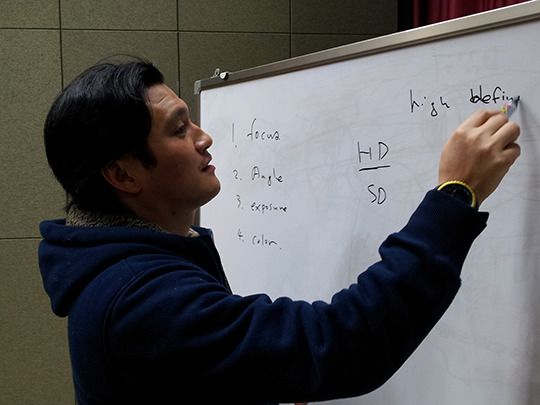 1. focus
2. Angle
3. exposure
4. color.
HD
SD
high defin